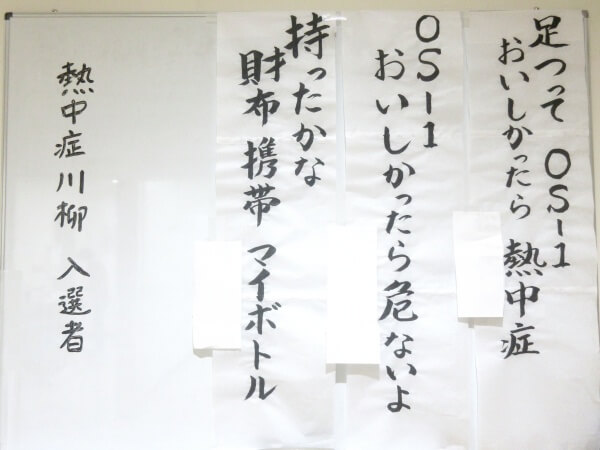 足つって OS-1
おいしかったら 熱中症
OS-1
おいしかったら危ないよ
持ったかな
財布 携帯 マイボトル
熱中症川柳 入選者